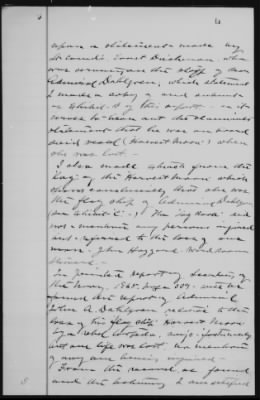 upon a statement made by
Lt Comdr. Ernest Dichman who
was commanding the ship of
Admiral Dahlgren, which statement
I made a copy of and annexed
as Exhibit B of this report - as it
seems to bear out the claimant's
statement that he was on board
said vessel (Harvest Moon) when
she was lost.
I also made extracts from the
Log of the Harvest Moon which
shows conclusively that she was
the flag ship of Admiral Dahlgren
(see Exhibit "C".) The "Log Book"
no mention any persons injured
and referred to the loss of one
man - John Hazzard Wardroom
Steward -
In printed report of Secretary of
the Navy, 1865. page 289 - will be
found the report of Admiral
John A. Dahlgren relative to the
loss of his flag ship Harvest Moon
by a rebel torpedo, and fortunately
but one life was lost. No mention
of any one being injured -
From the record as found
and the testimony I am satisfied